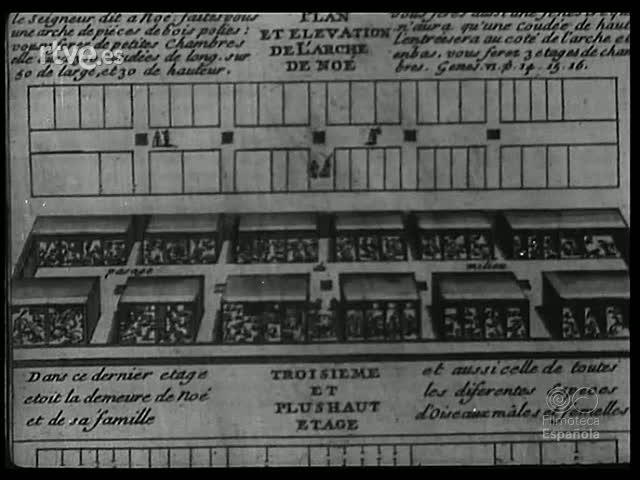 le Seigneur dit a Noé faites vous
une arche de pieces de bois polies:
vous de petites Chambres
elle coudées de long, sur
50 de large, et 30 de hauteur.
rtve.es
PLAN
ET ELEVATION
DE L'ARCHE
DE NOÉ
vous ferez aussi une
n'aura qu'une Coudée de haut
l'entrée sera au coté de l'arche et
enbas. vous ferez 3 etages de cham
bres. Genes. VI. 14. 15. 16.
passage
milieu
Dans ce dernier etage
etoit la demeure de Noé
et de sa famille
TROISIEME
ET
PLUSHAUT
ETAGE
et aussi celle de toutes
les diferentes especes
d'Oiseaux mâles et femelles
Filmoteca
Española